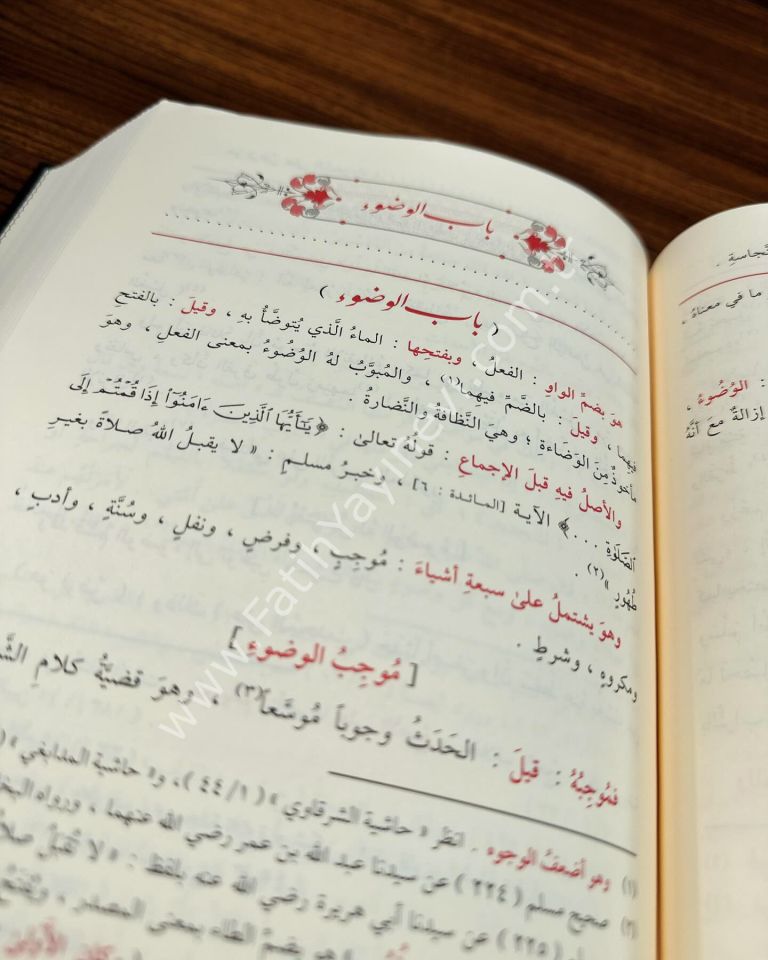 باب الوضوء
( باب الوضوء )
هو بضمِّ الواوِ : الفعلُ ، وبفتحِها : الماءُ الَّذي يُتوضَّأُ بهِ ، وقيلَ : بالفتحِ
فيهما ، وقيلَ : بالضَّمِّ فيهما(١) ، والمُبوَّبُ لهُ الوُضُوءُ بمعنى الفعلِ ، وهوَ
مأخوذٌ مِنَ الوَضَاءةِ ؛ وهيَ النَّظافةُ والنَّضارةُ .
والأصلُ فيهِ قبلَ الإجماعِ : قولُهُ تعالىٰ : ﴿ يَٰٓأَيُّهَا ٱلَّذِينَ ءَامَنُوٓا۟ إِذَا قُمْتُمْ إِلَى
ٱلصَّلَوٰةِ . . . ﴾ الآيةَ [المائدة : ٦] ، وخبرُ مسلمٍ : « لا يقبلُ اللهُ صلاةً بغيرِ
طُهُورٍ »(٢) .
وهوَ يشتملُ علىٰ سبعةِ أشياءَ : مُوجِبٍ ، وفرضٍ ، ونفلٍ ، وسُنَّةٍ ، وأدبٍ ،
ومكروهٍ ، وشرطٍ .
[ مُوجِبُ الوضوءِ ]
فمُوجِبُهُ : قيلَ : الحَدَثُ وجوباً مُوسَّعاً(٣) ، وهوَ قضيَّةُ كلامِ
(١) وهو أضعفُ الوجوه . انظر « حاشية الشرقاوي » ( ٤٤/١ ) ، و« حاشية المدابغي »
(٢) صحيح مسلم ( ٢٢٤ ) عن سيدنا عبد الله بن عمر رضي الله عنهما ، ورواه
( ٢٢٥ ) عن سيدنا أبي هريرة رضي الله عنه بلفظ : « لا تُقبَلُ
هو بضمِّ الطاء بمعنى المصدر ، ويُفتَحُ
نَّجاسةِ .
ما في معناهُ ،
: الوُضُوءُ ،
إزالةٌ معَ أنَّهُ
www.FatihYayinevi.com.tr